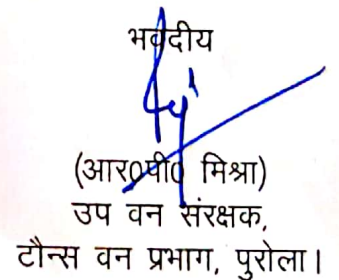 भवदीय
(आर0पी0 मिश्रा)
उप वन संरक्षक,
टौन्स वन प्रभाग, पुरोला।